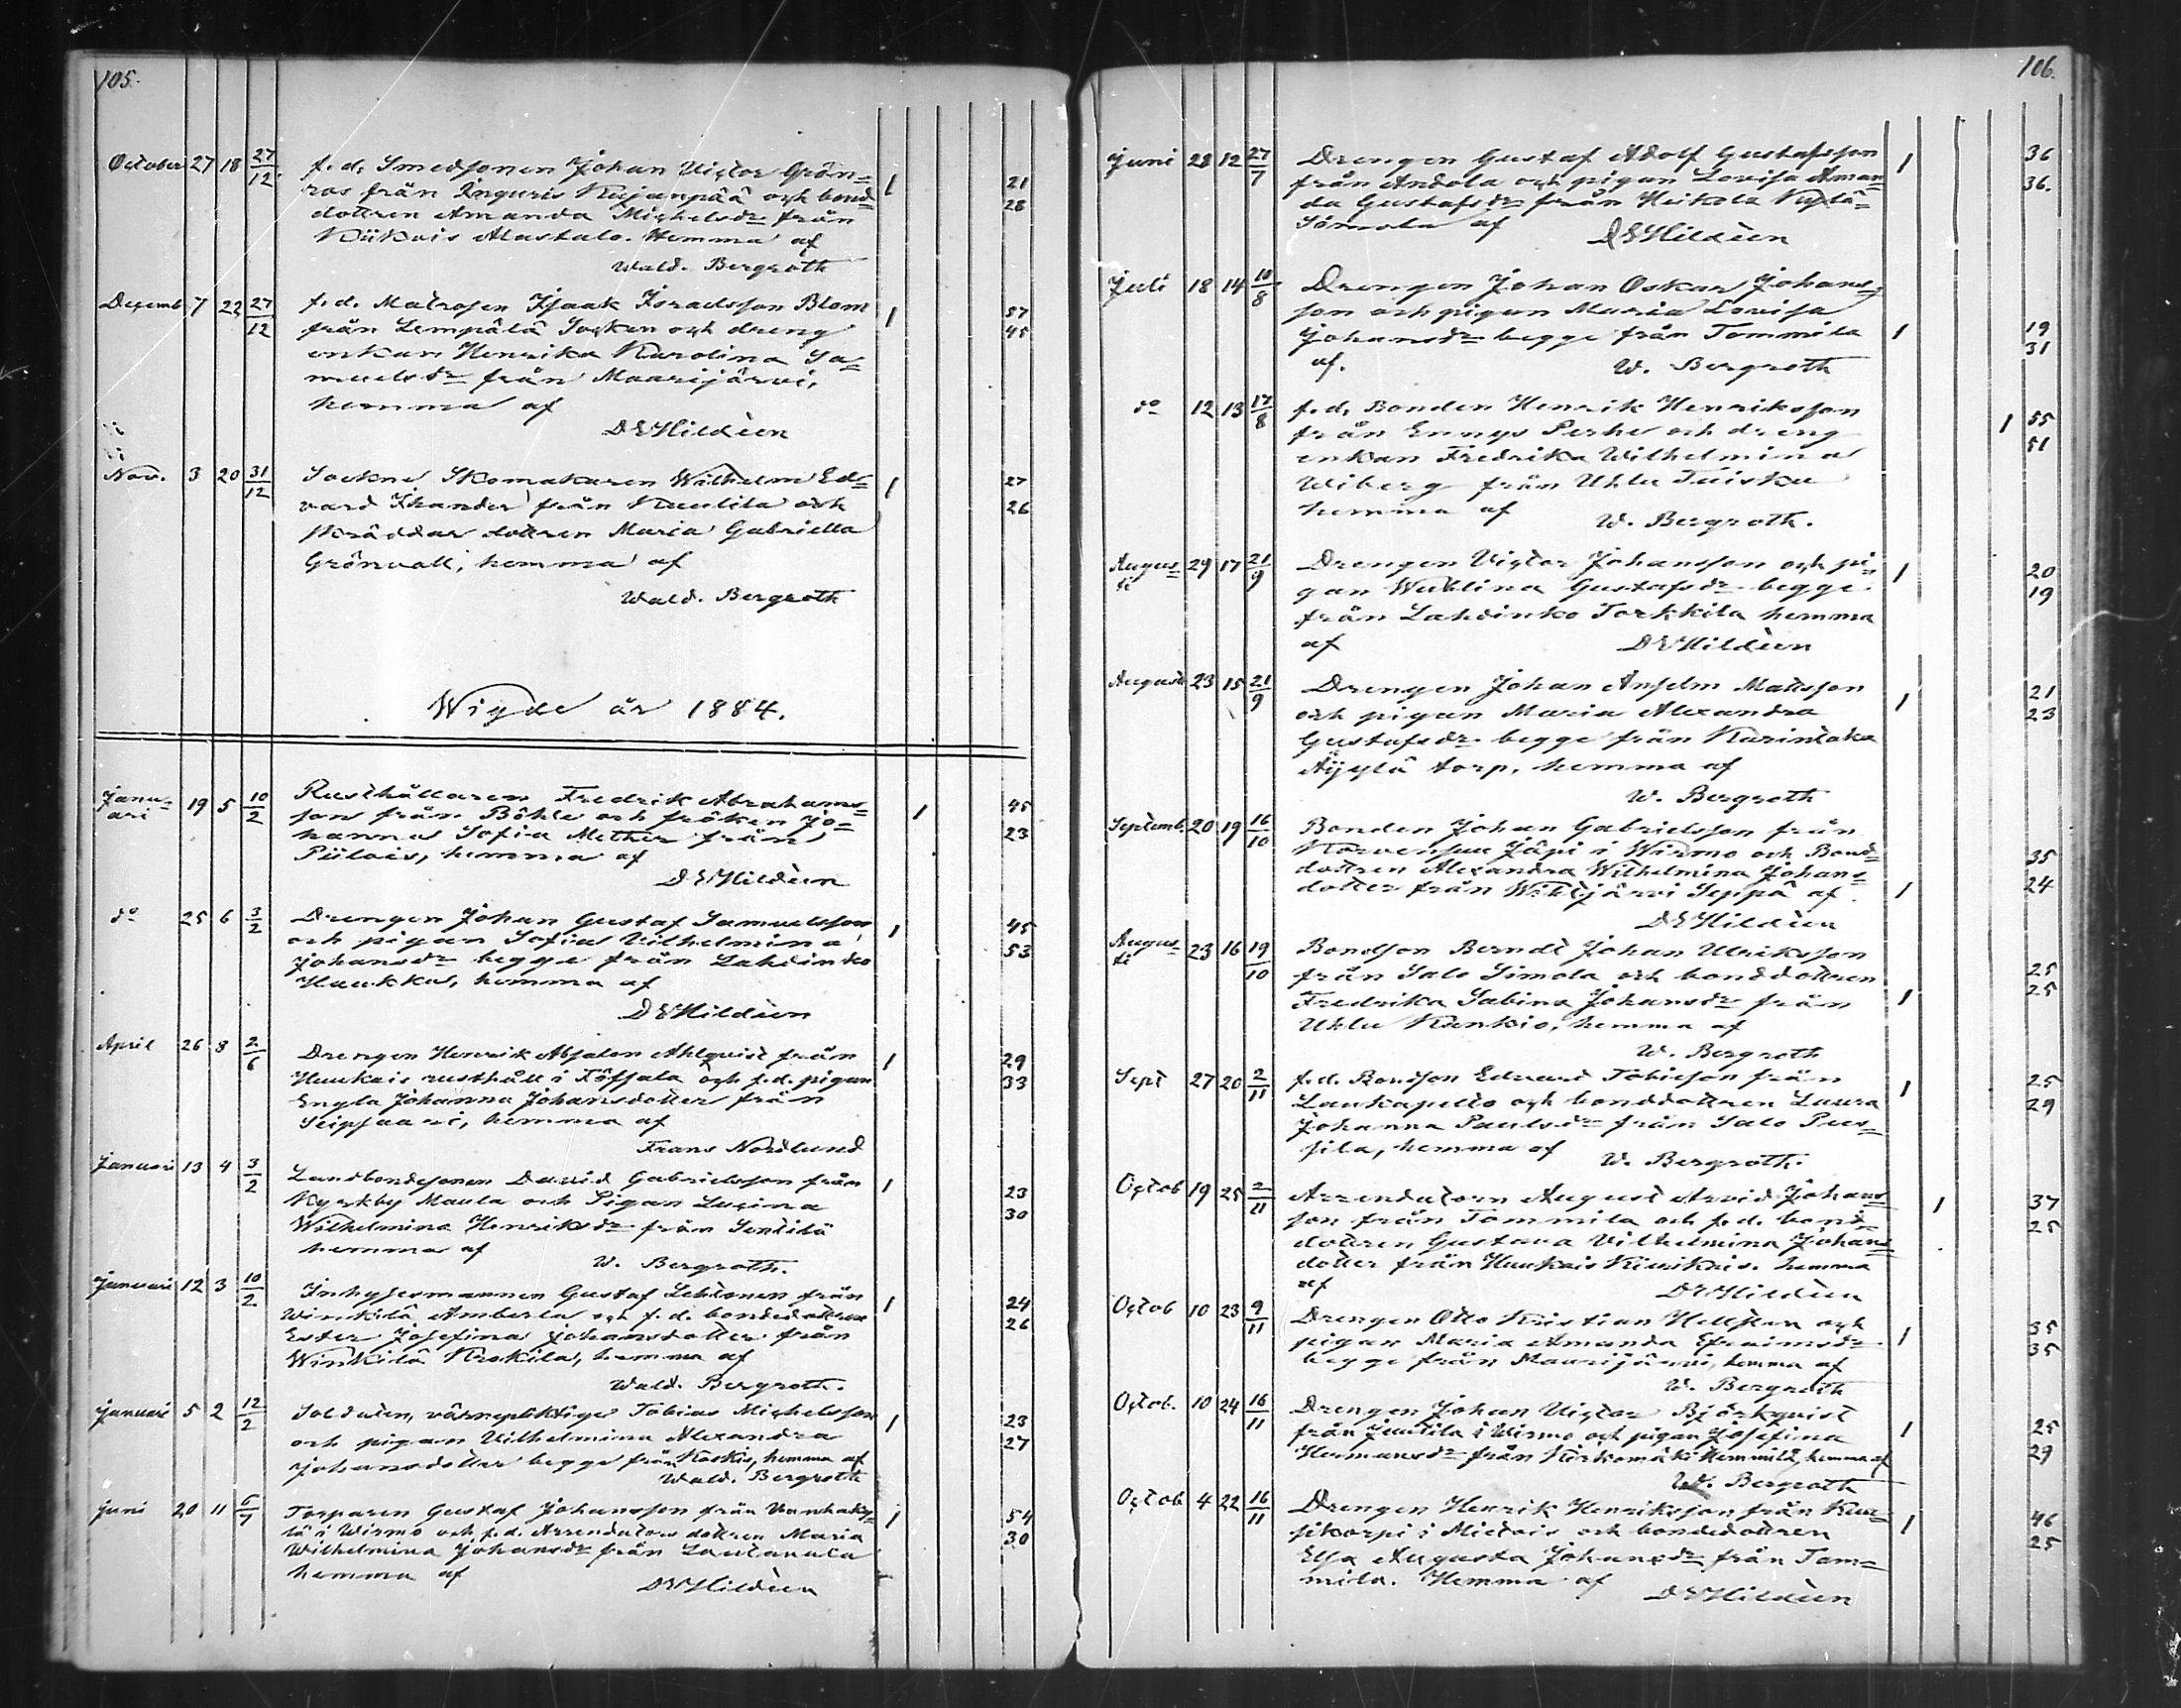 105.
October 27 18 27/12 f. d. Smedsonen Johan Victor Grön=
ros från Inguris Kujanpää och bond=
dottren Amanda Michelsdr från
Kiikois Alastalo. Hemma af
Wald. Bergroth
1 21
28
Decemb. 7 22 27/12 f. d. Matrosen Isaak Israelsson Blom
från Lempälä Socken och dreng
enkan Henrika Karolina Sa=
muelsdr från Maarijärvi,
hemma af
D E Hildèen
1 57
45
Nov. 3 20 31/12 Sockne Skomakaren Wilhelm Ed=
vard Ikander från Kuulila och
Skräddar dottren Maria Gabriella
Grönvall, hemma af
Wald. Bergroth
1 27
26
Wigde år 1884.
Janu=
ari 19 5 10/2 Rusthållaren Fredrik Abrahams=
son från Böhle och fröken Jo=
hanna Sofia Mether från
Piilois, hemma af
D E Hildèen
1 45
23
do 25 6 3/2 Drengen Johan Gustaf Samuelsson
och pigan Sofia Vilhelmina
Johansdr begge från Lahdinko
Haukka, hemma af
D E Hildèen
1 45
53
April 26 8 2/6 Drengen Henrik Absalon Ahlqvist från
Haukais rusthåll i Töfsala och f. d. pigan
Engla Johanna Johansdotter från
Seipsaari, hemma af
Frans Nordlund
1 29
33
Januari 13 4 3/2 Landbondesonen David Gabrielsson från
Kyrkby Maula och Pigan Lucina
Wilhelmina Henriksdr från Suntila
hemma af
W. Bergroth.
1 23
30
Januari 12 3 10/2 Inhysesmannen Gustaf Lehtonen från
Winkilä Amberla och f. d. bondedottren
Ester Josefina Johansdotter från
Winkilä Krokila, hemma af
Wald. Bergroth.
1 24
26
Januari 5 2 12/2 Soldaten, värnepliktige Tobias Michelsson
och pigan Vilhelmina Alexandra
Johansdotter begge från Koskis, hemma af
Wald. Bergroth
1 23
27
Juni 20 11 6/7 Torparen Gustaf Johansson från Vanhakylä=
lä i Wirmo och f. d. Arrendators dottren Maria
Wilhelmina Johansdr från Lautanala
hemma af
D E Hildèen
1 54
30
106.
Juni 28 12 27/7 Drengen Gustaf Adolf Gustafsson
från Andola och pigan Lovisa Aman=
da Gustafsdr från Heikola Kylä=
Sämola af
D E Hildèen
1 36
36.
Juli 18 14 10/8 Drengen Johan Oskar Johans=
son och pigan Maria Lovisa
Johansdr begge från Tommila
af.
W. Bergroth
1 19
31
do 12 13 17/8 f. d. Bonden Henrik Henriksson
från Ennys Perhe och dreng
enkan Fredrika Wilhelmina
Wiberg från Uhlu Tuisku
hemma af
W. Bergroth.
1 55
51
Augus=
ti 29 17 21/9 Drengen Victor Johansson och pi=
gan Wuhlina Gustafsdr begge
från Lahdinko Torkkila hemma
af
D E Hildèen
1 20
19
Augusti 23 15 21/9 Drengen Johan Anselm Mattsson
och pigan Maria Alexandra
Gustafsdr begge från Karintaka
Äyylä torp, hemma af
W. Bergroth
1 21
23
Septemb. 20 19 16/10 Bonden Johan Gabrielsson från
Korvensuu Jäpi i Wirmo och Bond=
dottren Alexandra Wilhelmina Johans=
dotter från Wihtjärvi Seppä af
D E Hildèen
1 35
24
Augus=
ti 23 16 19/10 Bondson Berndt Johan Ulriksson
från Salo Simola och bonddottren
Fredrika Sabina Johansdr från
Uhlu Kankio, hemma af
W. Bergroth
1 25
25
Sept 27 20 2/11 f. d. Bondson Edvard Tobisson från
Laukapelto och bonddottren Laura
Johanna Paulsdr från Salo Pus=
sila, hemma af
W. Bergroth.
1 25
29
Octob 19 25 2/11 Arrendatorn August Arvid Johans=
son från Tommila och f. d. bond=
dottren Gustava Vilhelmina Johans=
dotter från Haukais Kiurikais. hemma
af
D E Hildèen
1 37
25
Octob 10 23 9/11 Drengen Otto Kristian Hellsten och
pigan Maria Amanda Efraimsdr
begge från Maarijärvi, hemma af
W. Bergroth
1 35
35
Octob. 10 24 16/11 Drengen Johan Victor Björkqvist
från Juutila i Wirmo och pigan Josefina
Hermansdr från Kirkomäki Hemmilä, hemma af
W. Bergroth
1 25
29
Octob 4 22 16/11 Drengen Henrik Henriksson från Kuu=
sikorpi i Mietois och bondedottren
Elsa Augusta Johansdr från Tom=
mila. Hemma af
D E Hildèen
1 46
25